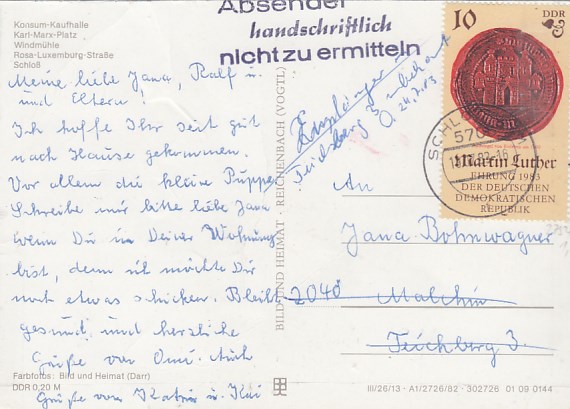 Konsum-Kaufhalle
Karl-Marx-Platz
Windmühle
Rosa-Luxemburg-Straße
Schloß
Absender
handschriftlich
nicht zu ermitteln
10 DDR
Martin Luther
EHRUNG 1983
DER DEUTSCHEN
DEMOKRATISCHEN
REPUBLIK
SCHL
570
Empfänger in
Teichberg 3 unbekannt
24.7.83
Meine liebe Jana, Ralf u.
und Eltern!
Ich hoffe Ihr seit gut
nach Hause gekommen.
Vor allem die kleine Puppe
Schreibe mir bitte liebe Jana
wenn Du in Deiner Wohnung
bist, denn ich möchte Dir
noch etwas schicken. Bleibt
gesund und herzliche
Grüße von Omi. Auch
Grüße von Katrin u. Kai
BILD UND HEIMAT · REICHENBACH (VOGTL)
An
Jana Bohnwagner
2040 Malchin
Teichberg 3.
Farbfotos: Bild und Heimat (Darr)
DDR 0,20 M
III/26/13 · A1/2726/82 · 302726 01 09 0144